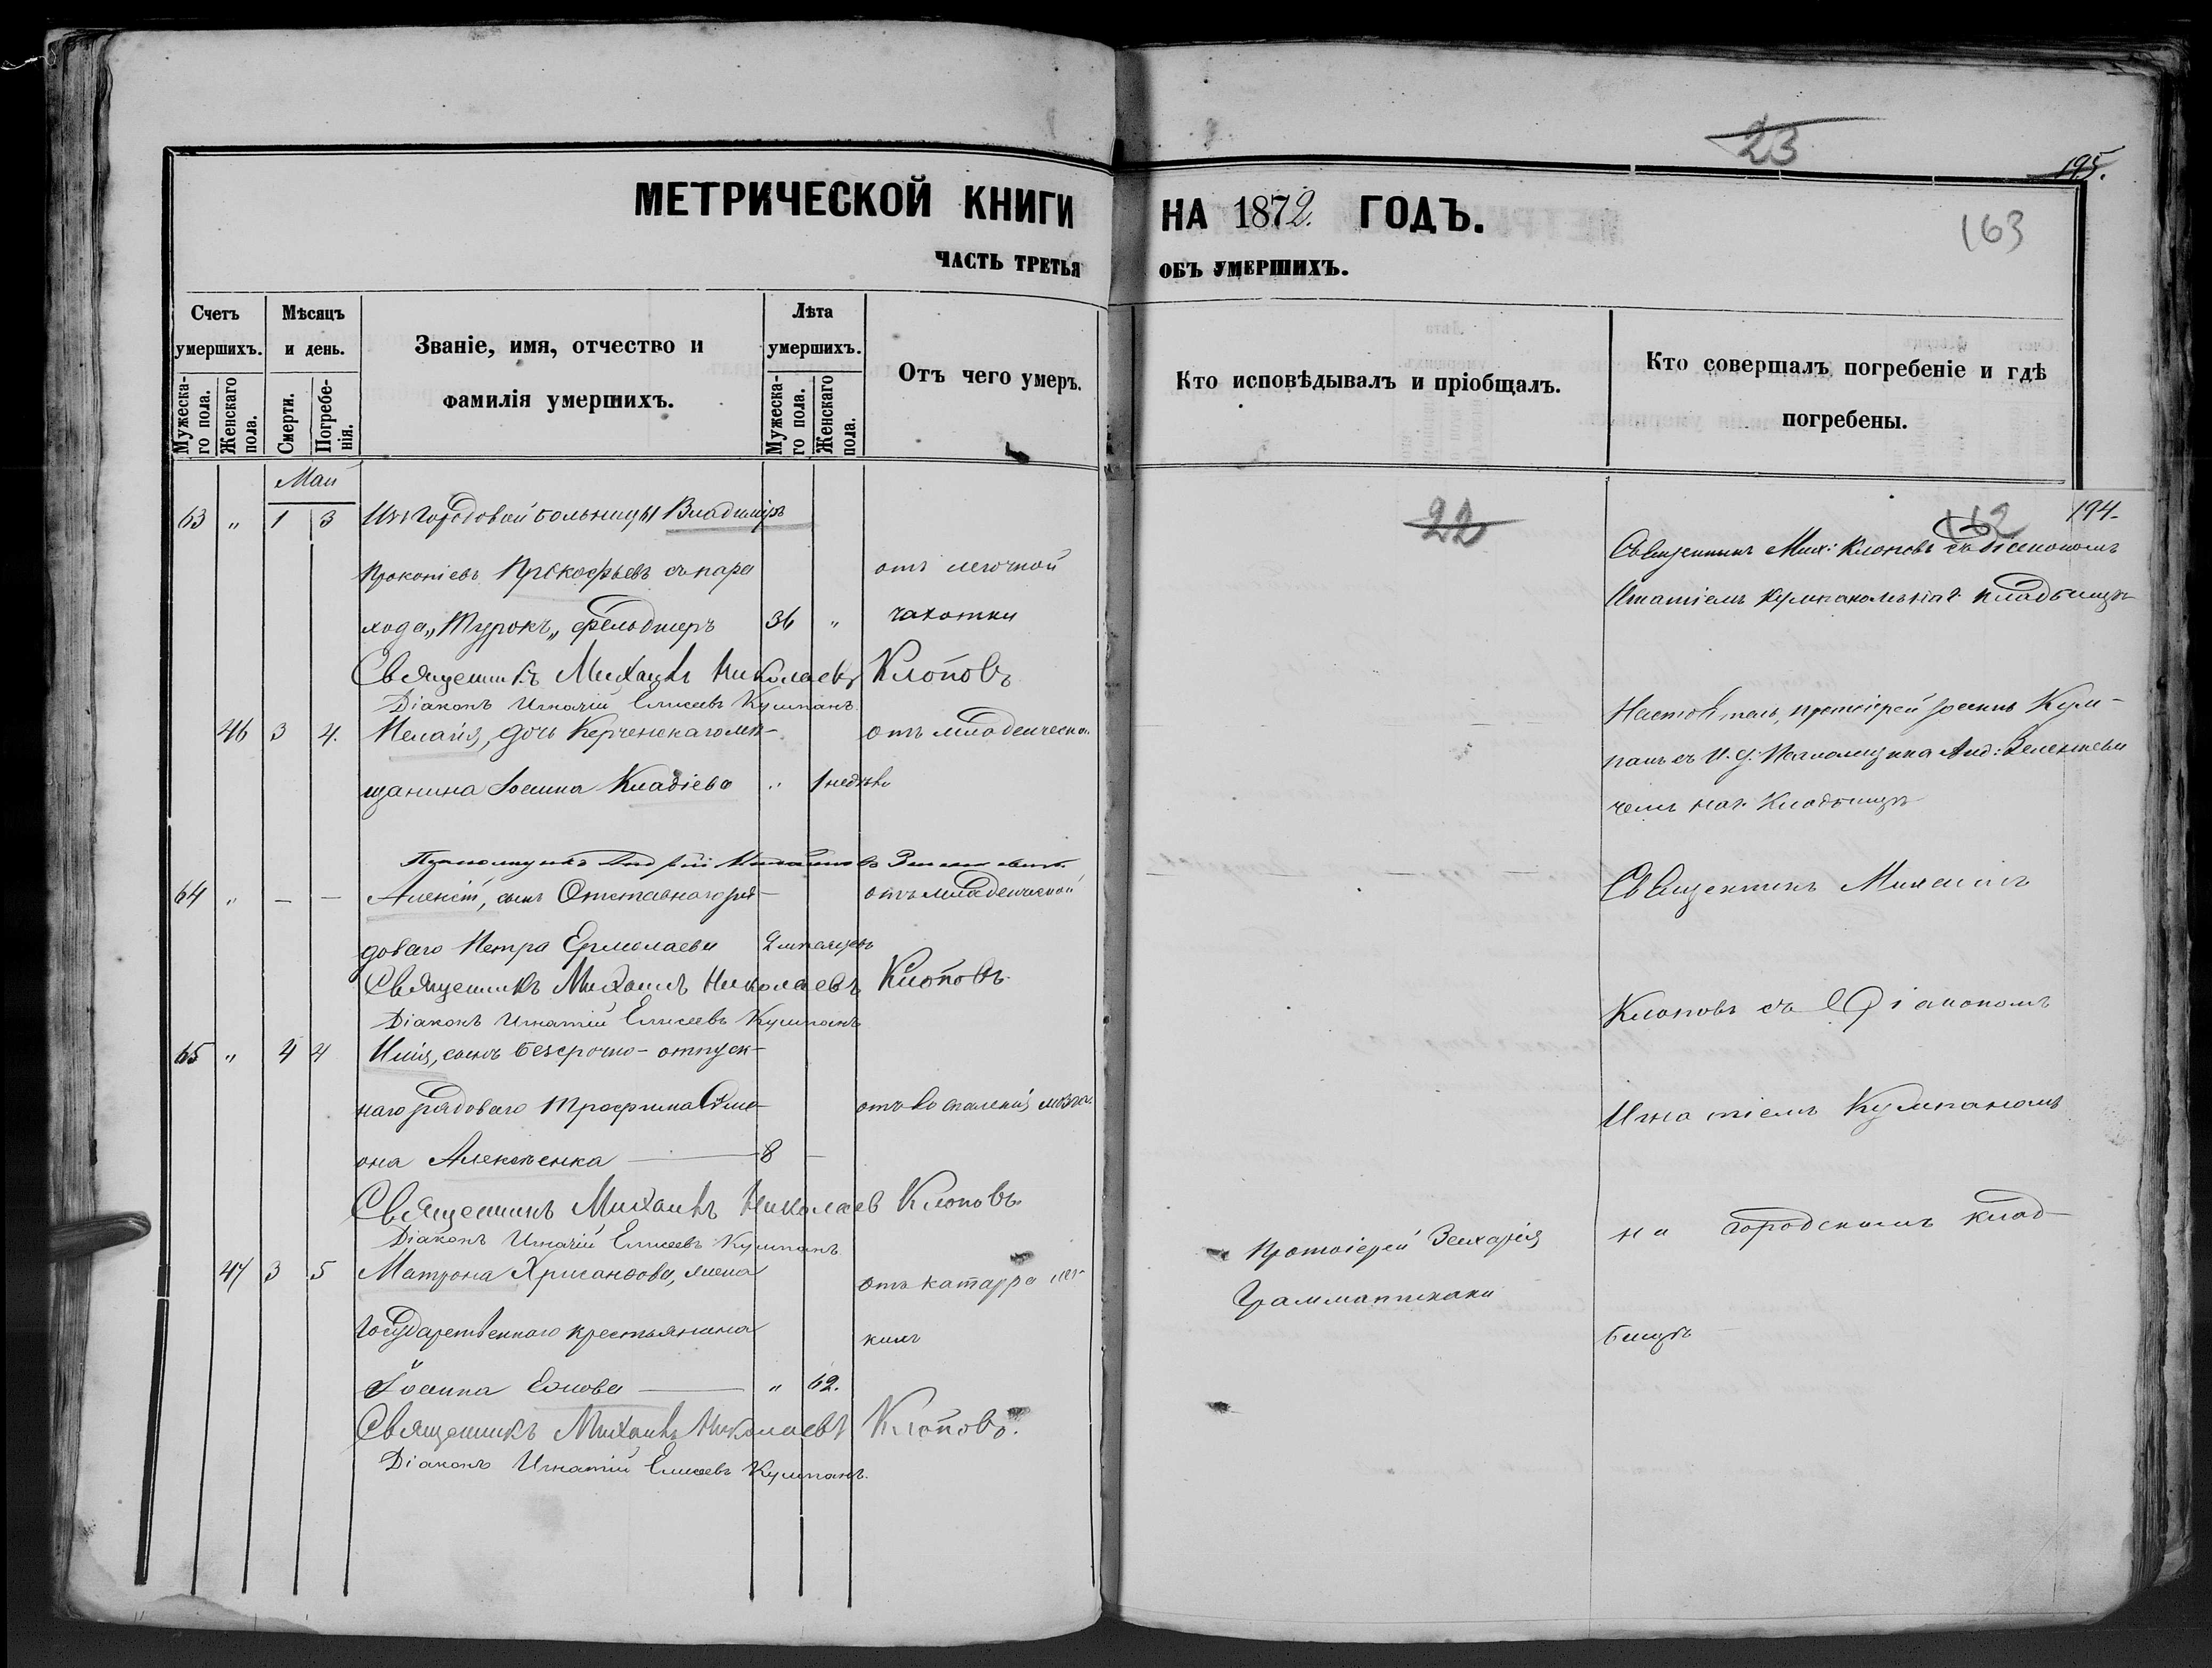 23
195.
МЕТРИЧЕСКОЙ КНИГИ НА 1872. ГОДЪ.
163
ЧАСТЬ ТРЕТЬЯ ОБЪ УМЕРШИХЪ.
Счетъ умершихъ.
Мужеска-го пола.
Женскаго пола.
Мѣсяцъ и день.
Смерти.
Погребе-нія.
Званіе, имя, отчество и фамилія умершихъ.
Лѣта умершихъ.
Мужеска-го пола.
Женскаго пола.
Отъ чего умеръ.
Кто исповѣдывалъ и пріобщалъ.
Кто совершалъ погребеніе и гдѣ погребены.
Май
22
162
194.
63 " 1 3 Изъ Городовой больницы Владиміръ
Прокопіевъ Прокофьевъ съ паро
отъ легочной
хода „Турокъ„ фельдшеръ 36 " чахотки
Священникъ Мих: Клоповъ съ Діакономъ
Игнатіемъ Кумпаномъ на г. кладбищѣ
Священникъ Михаилъ Николаевъ Клоповъ
Діаконъ Игнатій Елисеевъ Кумпанъ.
46 3 4. Пелагія, дочь Керченскаго мѣ-
отъ младенческой
щанина Іоанна Кладіева " 1 недѣли
Настоятель, протоіерей Іоаннъ Кум-
панъ съ И. д. Псаломщика Анд: Зеленкеви
чемъ на г. Кладбищѣ
Псаломщикъ Андрей
64 " – – Алексій, сынъ Отставнаго ря-
отъ младенческой
доваго Петра Ермолаева 2 мѣсяцевъ
Священникъ Михаилъ Николаевъ Клоповъ
Діаконъ Игнатій Елисеевъ Кумпанъ
Священникъ Михаилъ
Клоповъ съ Діакономъ
65 " 4 4 Илія, сынъ безсрочно-отпуск-
наго рядоваго Трофима Симе-
отъ воспаленія мозга.
она Алексѣенка 8 –
Игнатіемъ Кумпаномъ
Священникъ Михаилъ Николаевъ Клоповъ.
Діаконъ Игнатій Елисеевъ Кумпанъ
на городскомъ клад-
47 3 5 Матрона Хрисанфова, жена
отъ катарра лег-
Протоіерей Захарія
Государственнаго крестьянина
кихъ
Грамматикаки
бищѣ
Іоанна " 62.
Священникъ Михаилъ Николаевъ Клоповъ.
Діаконъ Игнатій Елисеевъ Кумпанъ.